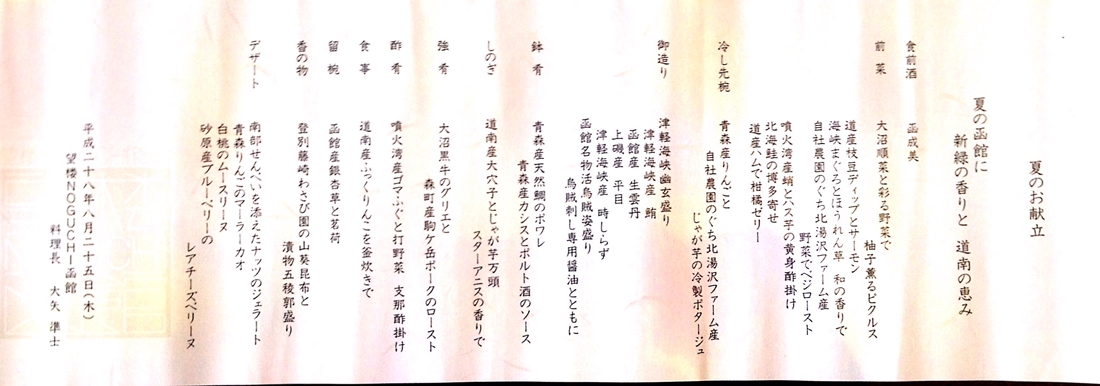 夏のお献立
夏の函館に
新緑の香りと 道南の恵み
食前酒 函成美
前菜 大沼順菜と彩る野菜で
柚子薫るピクルス
道産枝豆ディップとサーモン
海峡まぐろとほうれん草 和の香りで
自社農園のぐち北湯沢ファーム産
野菜でベジロースト
噴火湾産蛸とハス芋の黄身酢掛け
北海鮭の博多寄せ
道産ハムで柑橘ゼリー
冷し先椀 青森産りんごと
自社農園のぐち北湯沢ファーム産
じゃが芋の冷製ポタージュ
御造り 津軽海峡幽玄盛り
津軽海峡産 鮪
函館産 生雲丹
上磯産 平目
津軽海峡産 時しらず
函館名物活烏賊姿盛り
烏賊刺し専用醤油とともに
鉢肴 青森産天然鯛のポワレ
青森産カシスとポルト酒のソース
しのぎ 道南産大穴子とじゃが芋万頭
スターアニスの香りで
強肴 大沼黒牛のグリエと
森町産駒ケ岳ポークのロースト
酢肴 噴火湾産ゴマふぐと打野菜 支那酢掛け
食事 道南産ふっくりんこを釜炊きで
留椀 函館産銀杏草と茗荷
香の物 登別藤崎わさび園の山葵昆布と
漬物五稜郭盛り
デザート 南部せんべいを添えたナッツのジェラート
青森りんごのマーラーカオ
白桃のムースリーヌ
砂原産ブルーベリーの
レアチーズベリーヌ
平成二十八年八月二十五日(木)
望楼NOGUCHI函館
料理長 大矢 準士